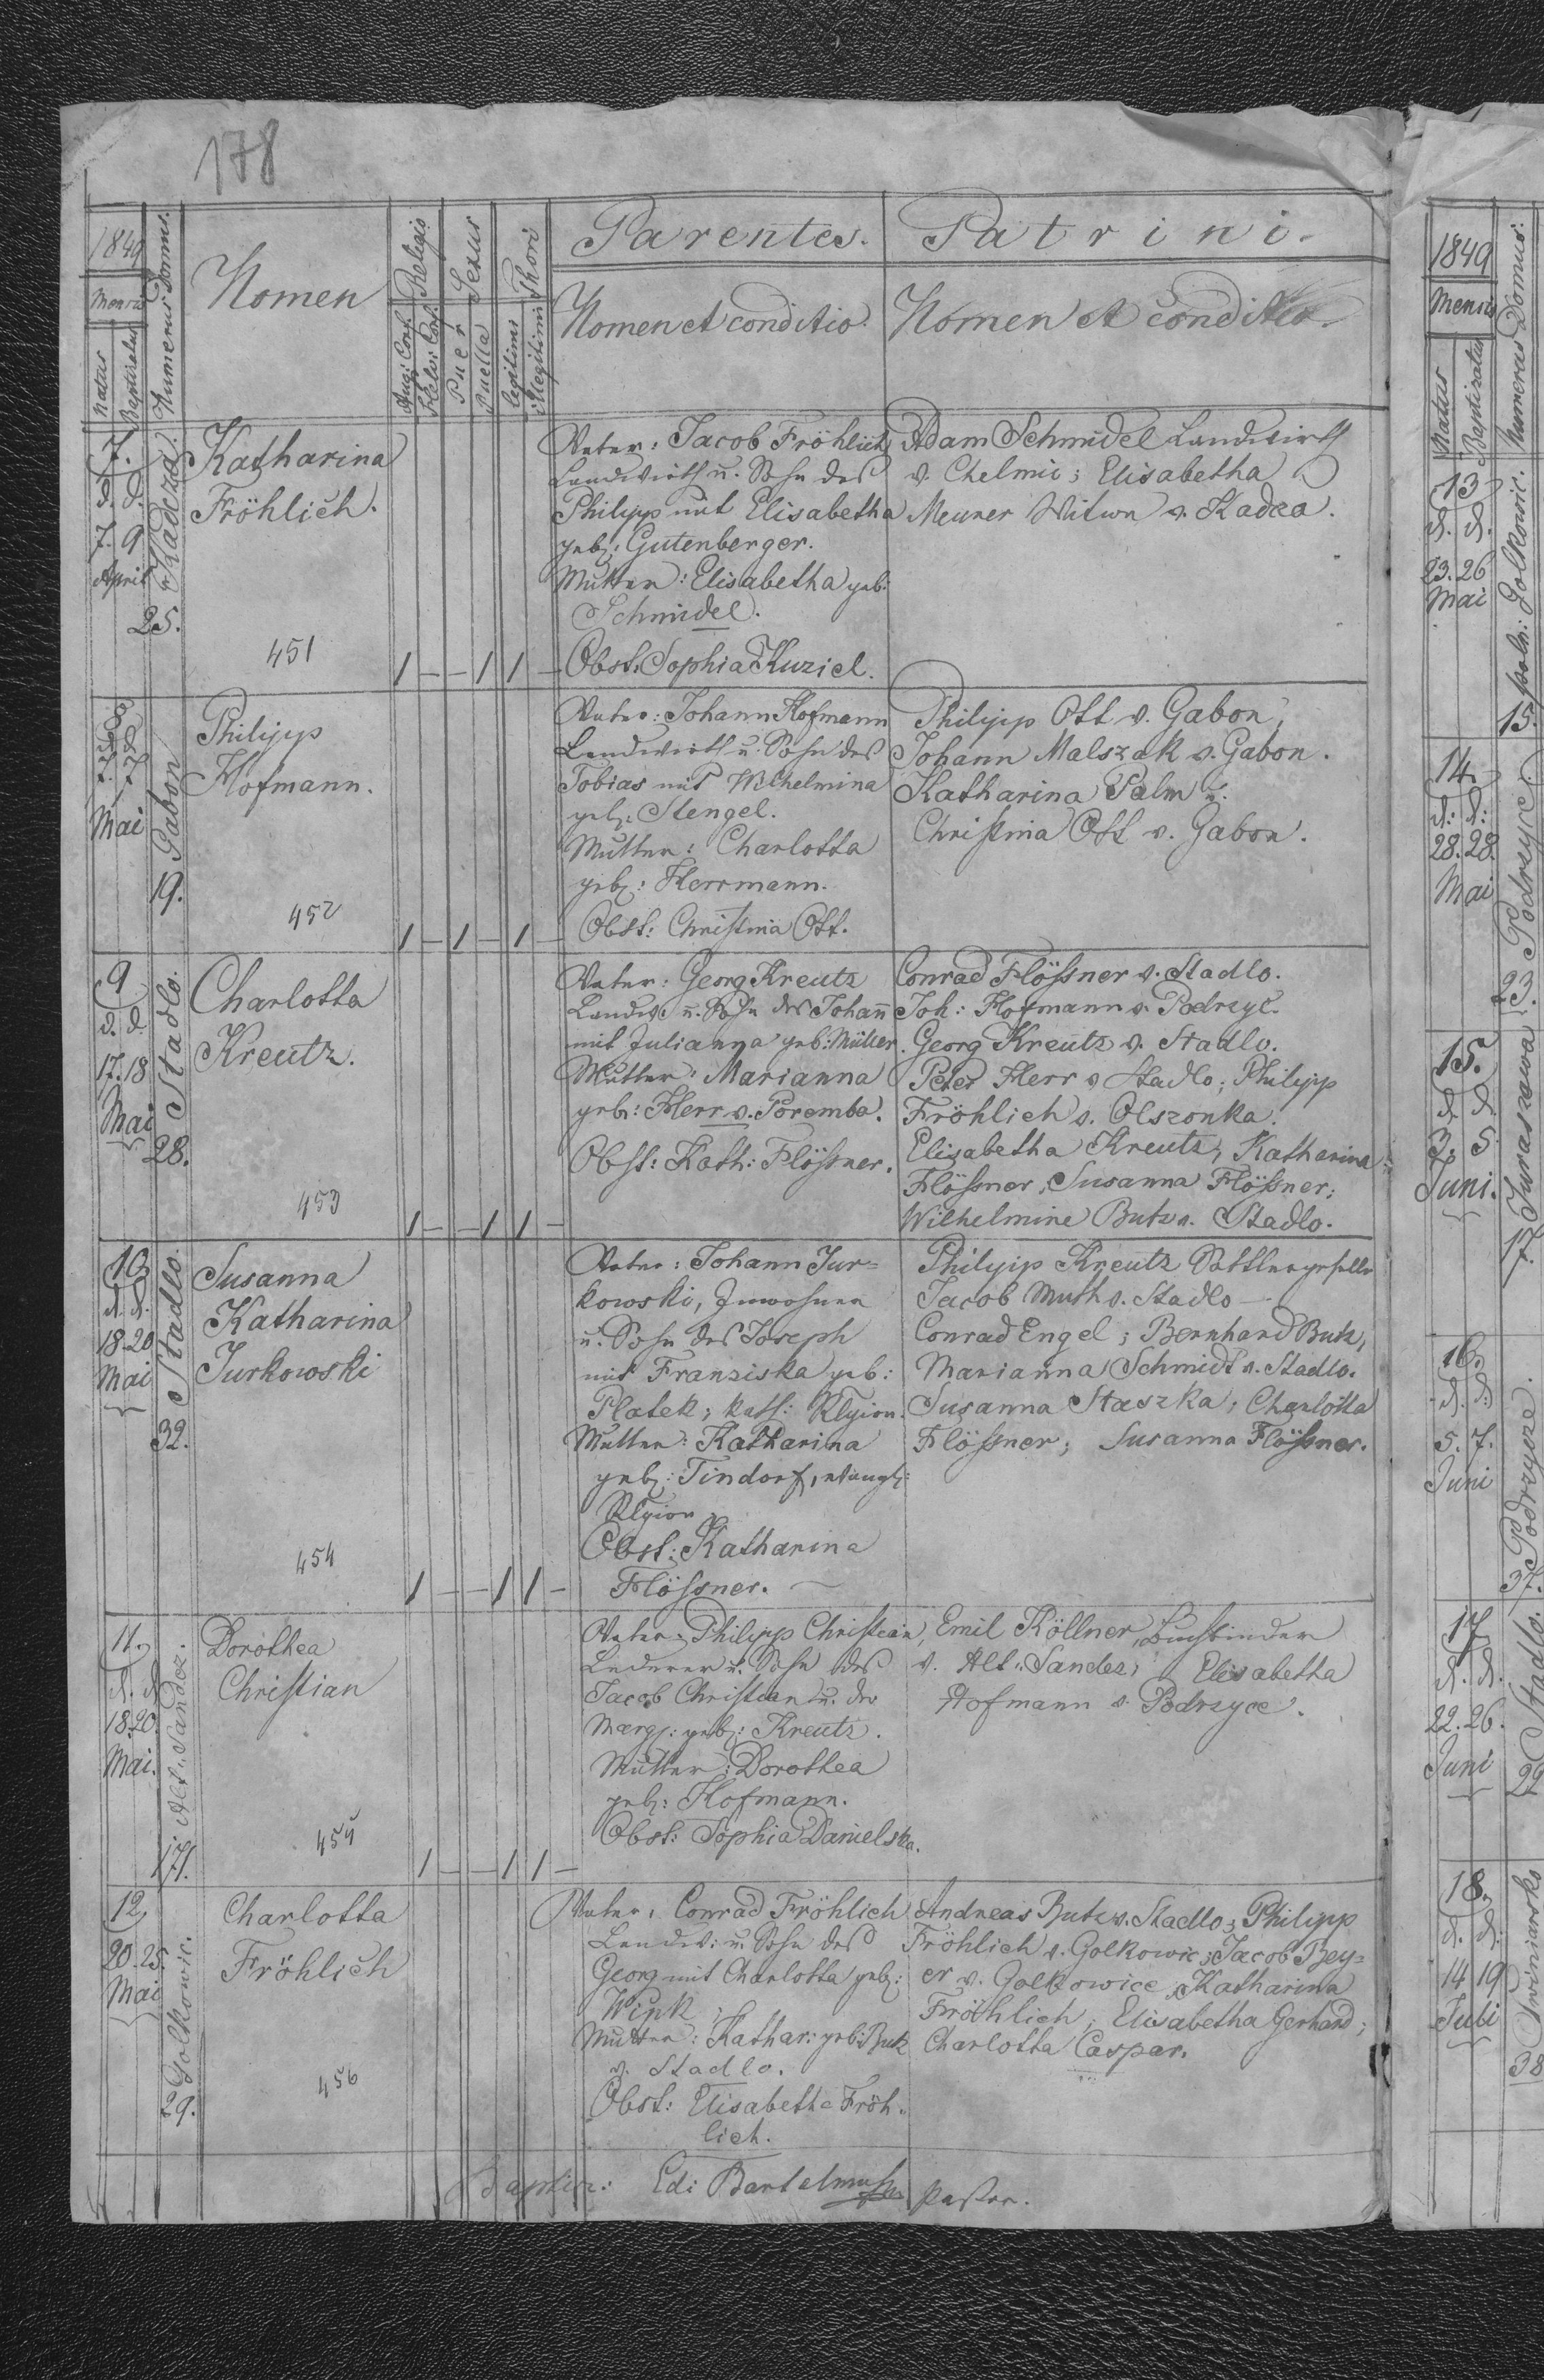 178
1849
Mensis
Natus
Baptizatus
Numerus Domus.
Nomen
Religio
Aug: Conf.
Helv: Conf.
Sexus
Puer
Puella
Thori
legitimi
illegitimi
Parentes.
Patrini.
Nomen et conditio.
Nomen et conditio.
7.
d. d.
7. 9.
April
v. Kadcza.
25.
Katharina
Fröhlich.
451
1 – – 1 1 –
Vater: Jacob Fröhlich
Landwirth u. Sohn des
Philipp mit Elisabetha
geb: Gutenberger.
Mutter: Elisabetha geb:
Schmidel.
Obst. Sophia Kuziel.
Adam Schmidel Landwirth
v. Chelmic; Elisabetha
Meurer Witwe v. Kadca.
8.
d. d.
7. 7.
Mai
Gabon
19.
Philipp
Hofmann.
452
1 – 1 – 1 –
Vater: Johann Hofmann
Landwirth u. Sohn des
Tobias mit Wilhelmina
geb: Stengel.
Mutter: Charlotta
geb: Herrmann.
Obst: Christina Ott.
Philipp Ott v. Gabon;
Johann Malszak v. Gabon.
Katharina Palm u.
Christina Ott v. Gabon.
9
d. d
17. 18
Mai
Stadlo.
28.
Charlotta
Kreutz.
453
1 – – 1 1 –
Vater: Georg Kreutz
Landw. u. Sohn des Johan̄
mit Julianna geb: Müller.
Mutter: Marianna
geb: Herr v. Poremba.
Obst: Kath: Flößner.
Conrad Flößner v. Stadlo.
Joh: Hofmann v. Podrzyc.
Georg Kreutz v. Stadlo.
Peter Herr v Stadlo; Philipp
Fröhlich v. Olszonka.
Elisabetha Kreutz, Katharina
Flößner; Susanna Flößner;
Wilhelmine Butz v. Stadlo.
10
d. d.
18. 20
Mai
Stadlo.
32.
Susanna
Katharina
Jurkowski
454
1 – – 1 1 –
Vater: Johann Jur=
kowski, Inwohner
u. Sohn des Joseph
mit Franziska geb:
Platek; kath: Religion.
Mutter: Katharina
geb: Tindorf, evangl:
Religion
Obst: Katharina
Flößner. –
Philipp Kreutz Sattlergeselle
Jacob Muth v. Stadlo –
Conrad Engel; Bernhard Butz,
Marianna Schmidt v. Stadlo.
Susanna Staszka; Charlotta
Flößner; Susanna Flößner.
11.
d. d
18. 20.
Mai.
Alt-Sandez.
171.
Dorothea
Christian
455
1 – – 1 1 –
Vater: Philipp Christian,
Lederer u. Sohn des
Jacob Christian u. der
Margr: geb: Kreutz.
Mutter: Dorothea
geb: Hofmann.
Obst: Sophia Danielska.
Emil Köllner, Buchbinder
v. Alt-Sandez; Elisabetha
Hofmann v. Podrzyce.
12.
20. 25.
Mai
Golkowic.
29.
Charlotta
Fröhlich
456
Vater: Conrad Fröhlich
Landw: u. Sohn des
Georg mit Charlotta geb:
Mutter: Kathar: geb: Butz
v. Stadlo.
Obst: Elisabetha Fröh-
lich.
Andreas Butz v. Stadlo; Philipp
Fröhlich v. Golkowic; Jacob Bey=
er v. Golkowice, Katharina
Fröhlich; Elisabetha Gerhard;
Charlotta Caspar.
Baptiz: Edi Bartelmuß Pastor.
1849
Mensis
Natus
Baptizatus
Numerus Domus.
13
d. d.
23. 26
Mai
poln: Golkowic.
15.
14.
d. d:
28. 28.
Mai
Podrzyce.
23.
15.
d d.
3. 5
Juni.
Juraszowa
17.
16.
d. d.
5. 7.
Juni
Podrzyce.
37.
17
d. d.
22. 26.
Juni
Stadlo.
22
18.
d. d.
14 19
Juli
Swiniarsko
38